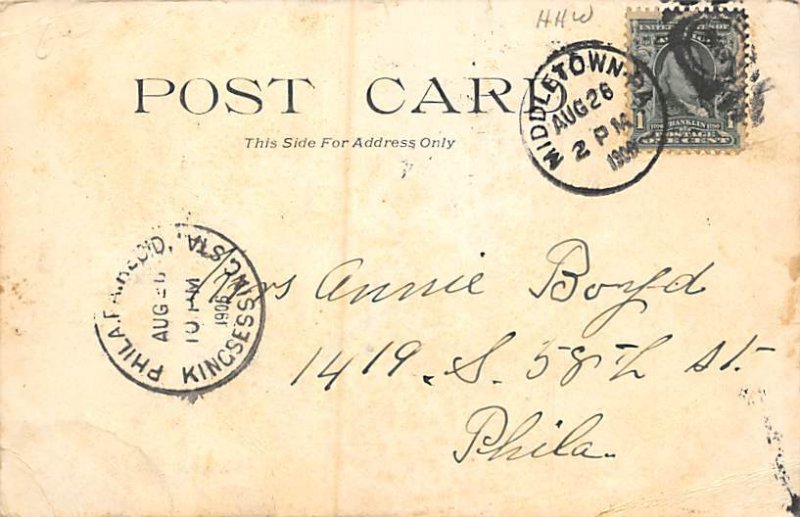 HHW
UNITED STATES OF
AMERICA
1 FRANKLIN 1
POSTAGE
ONE CENT
POST CARD
This Side For Address Only
MIDDLETOWN
AUG 26
2 PM
1906
PHILA. PA. REC'D.
KINGSESSING STA.
AUG 26
10 PM
1906
Mrs Annie Boyd
1419. S. 58th St.
Phila.